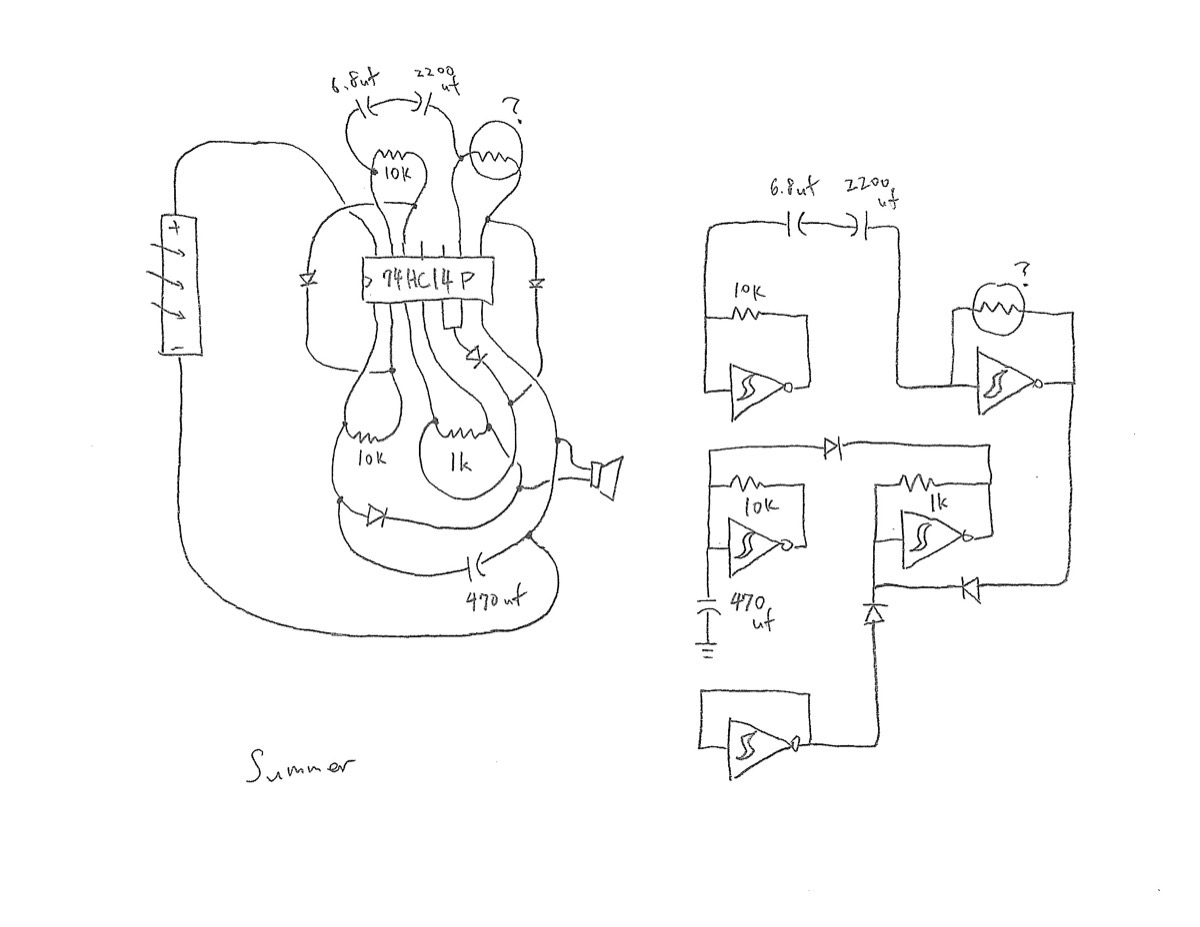 6.8uf 2200
uf
?
10k
+
74HC14P
-
10k
1k
470uf
Summer
6.8uf 2200
uf
?
10k
10k
1k
470
uf